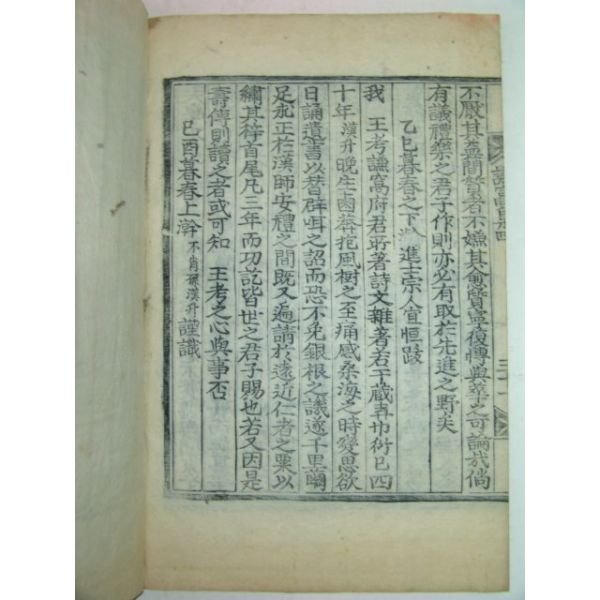 不厭其無間管者不嫌其愈賢寧復傳與華之可論哉倘
有議禮樂之君子作則亦必有取於先進之野矣
乙巳暮春之下澣 進士宗人宜恒跋
我 王考謙窩府君所著詩文雜著若干藏弆巾衍已四
十年漢升晚生鹵莽抱風樹之至痛感桑海之時變思欲
日誦遺書以替辟咡之詔而恐不免銀根之議遂千里繭
足求正於漢師安禮之間既又遍請於遠近仁者之粟以
繡其梓首尾凡三年而功訖皆世之君子賜也若又因是
壽傳則讀之者或可知 王考之心與事否
己酉暮春上澣不肖孫漢升謹識